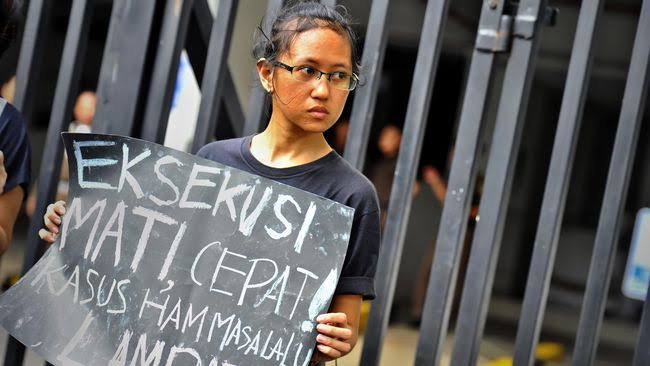 EKSEKUSI
MATI CEPAT
KASUS HAM MASALALU
LAMBAT